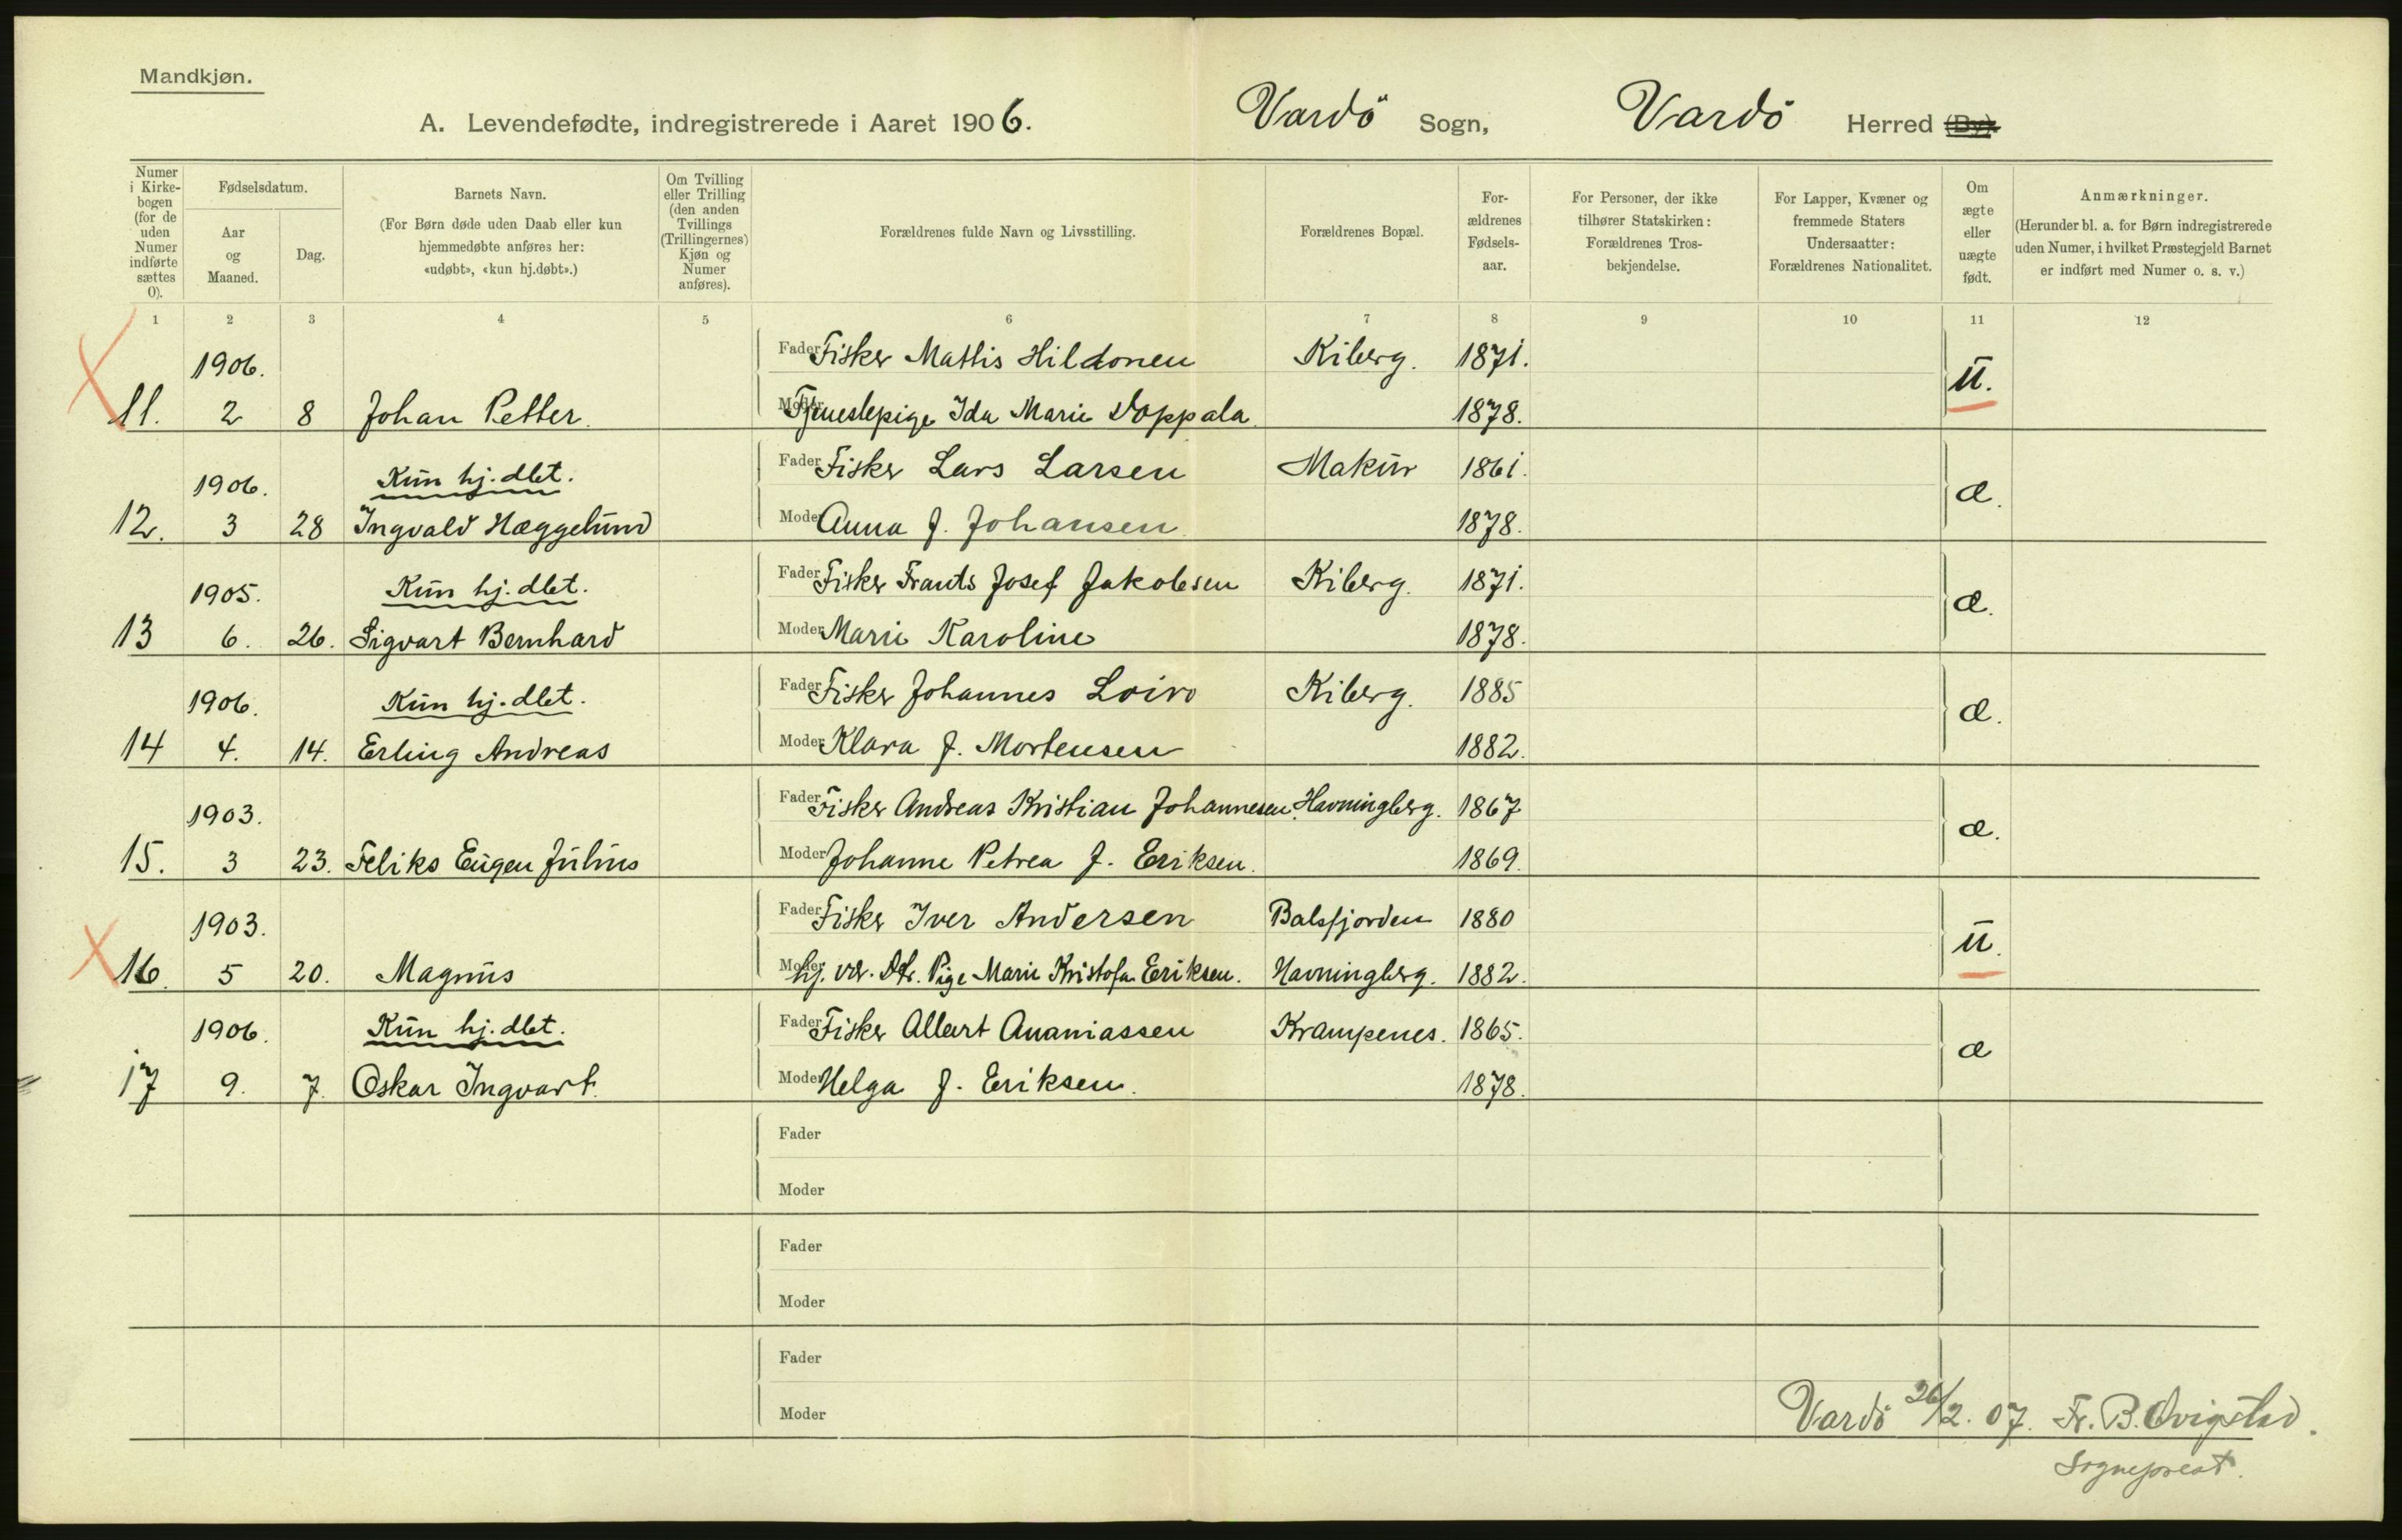 Mandkjøn.
A. Levendefødte, indregistrerede i Aaret 1906.
Vardö Sogn, Vardö Herred (By).
Numer i Kirke-bogen (for de uden Numer indførte sættes 0).
Fødselsdatum.
Aar og Maaned.
Dag.
Barnets Navn.
(For Børn døde uden Daab eller kun hjemmedøbte anføres her: «udøbt», «kun hj.døbt».)
Om Tvilling eller Trilling (den anden Tvillings (Trillingernes) Kjøn og Numer anføres).
Forældrenes fulde Navn og Livsstilling.
Forældrenes Bopæl.
For-ældrenes Fødsels-aar.
For Personer, der ikke tilhører Statskirken: Forældrenes Tros-bekjendelse.
For Lapper, Kvæner og fremmede Staters Undersaatter: Forældrenes Nationalitet.
Om ægte eller uægte født.
Anmærkninger.
(Herunder bl. a. for Børn indregistrerede uden Numer, i hvilket Præstegjeld Barnet er indført med Numer o. s. v.)
1 2 3 4 5 6 7 8 9 10 11 12
1906. Fader Fisker Mattis Hildonen Kiberg. 1871. u.
11. 2 8 Johan Petter. Moder Tjenestepige Ida Marie Soppala. 1878.
1906. Kun hj. dbt. Fader Fisker Lars Larsen Makur 1861. æ.
12. 3 28 Ingvald Hæggelund Moder Anna f. Johansen. 1878.
1905. Kun hj. dbt. Fader Fisker Frants Josef Jakobsen Kiberg. 1871. æ.
13 6. 26. Sigvart Bernhard Moder Marie Karoline 1878.
1906. Kun hj. dbt. Fader Fisker Johannes Loivo Kiberg. 1885 æ.
14 4. 14. Erling Andreas Moder Klara f. Mortensen 1882.
1903. Fader Fisker Andreas Kristian Johannesen. Havningberg. 1867 æ.
15. 3 23. Feliks Eugen Julius Moder Johanne Petrea f. Eriksen. 1869.
1903. Fader Fisker Iver Andersen Balsfjorden 1880 u.
16. 5 20. Magnus Moder hj. vær. Dtr. Pige Marie Kristofa Eriksen. Havningberg. 1882.
1906. Kun hj. dbt. Fader Fisker Albert Ananiassen Krampenes. 1865. æ
17 9. 7. Oskar Ingvart. Moder Helga f. Eriksen. 1878.
Fader
Moder
Fader
Moder
Fader
Moder
Vardö 26/2. 07. Fr. B. Qvigstad.
Sogneprest.